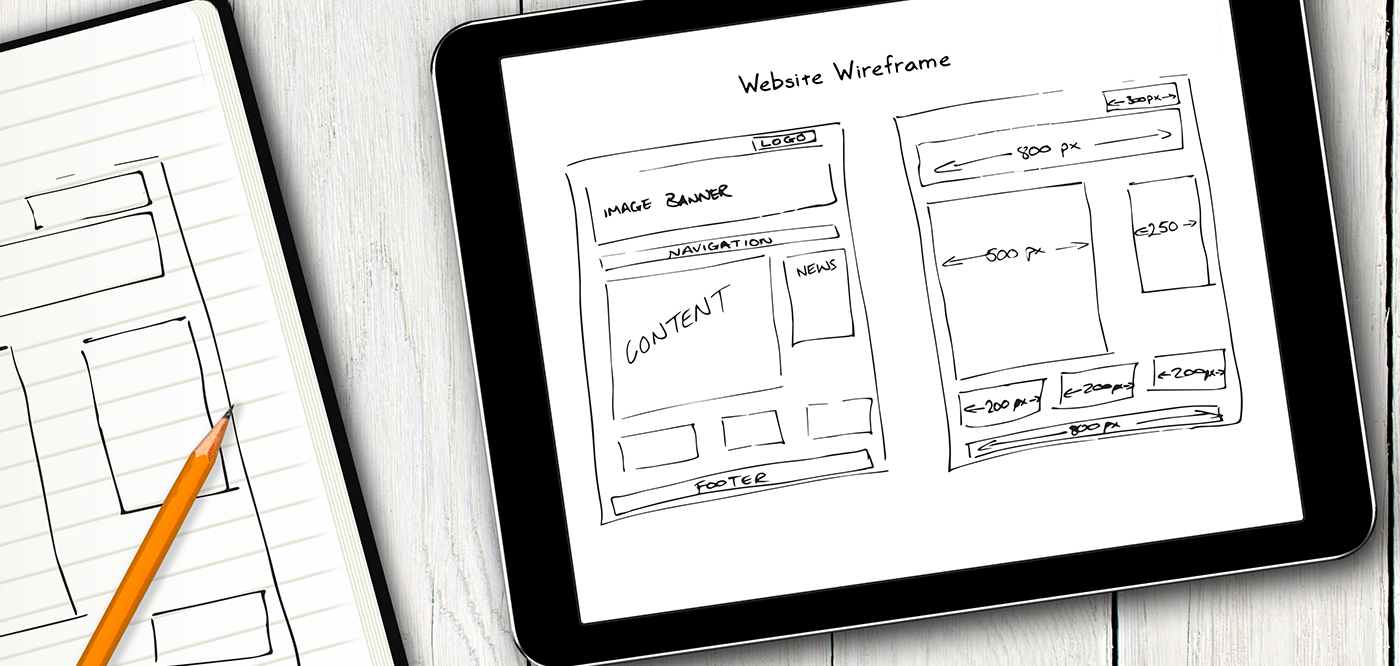 Website Wireframe
LOGO
IMAGE BANNER
NAVIGATION
CONTENT
NEWS
FOOTER
300px
800 px
500 px
250
200 px
200px
200px
800px